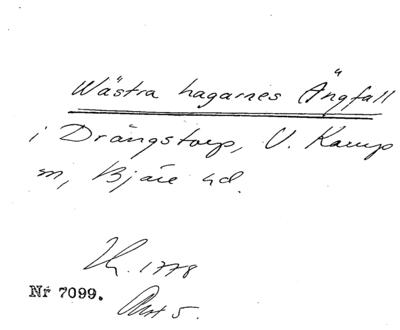 Wästra hagarnes Ängfall
i Drängstorp, V. Karup
sn, Bjäre hd.
1778
Nr 7099.
Akt 5.